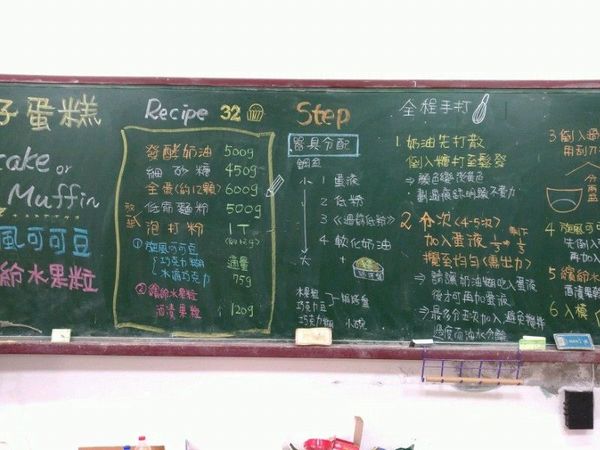 子蛋糕
cake or
Muffin
風可可豆
給水果粒
Recipe 32
發酵奶油 500g
細砂糖 450g
全蛋(約12顆) 600g
低筋麵粉 500g
泡打粉 1T
①旋風可可豆 適量
巧克力糊
水滴巧克力 75g
②繽紛水果粒
酒漬果粒 120g
Step
器具分配
鋼盆
小 1 蛋液
2 低粉
3 (過篩低粉)
大 4 軟化奶油
+
水果粒
巧克力豆
巧克力糊 小碗
全程手打
1 奶油先打散
倒入糖打至鬆發
⇒ 顏色變淺黃色
2 分次(4-5次)
加入蛋液
攪至均勻(需出力)
⇒ 請讓奶油糊吃入蛋液
後才可再加蛋液
⇒ 最多分五次加入,避免攪拌
過度而油水分離
3 倒入過
用刮刀
4 旋風可可
先倒入
再加入
5 繽紛水
酒漬果
6 入模